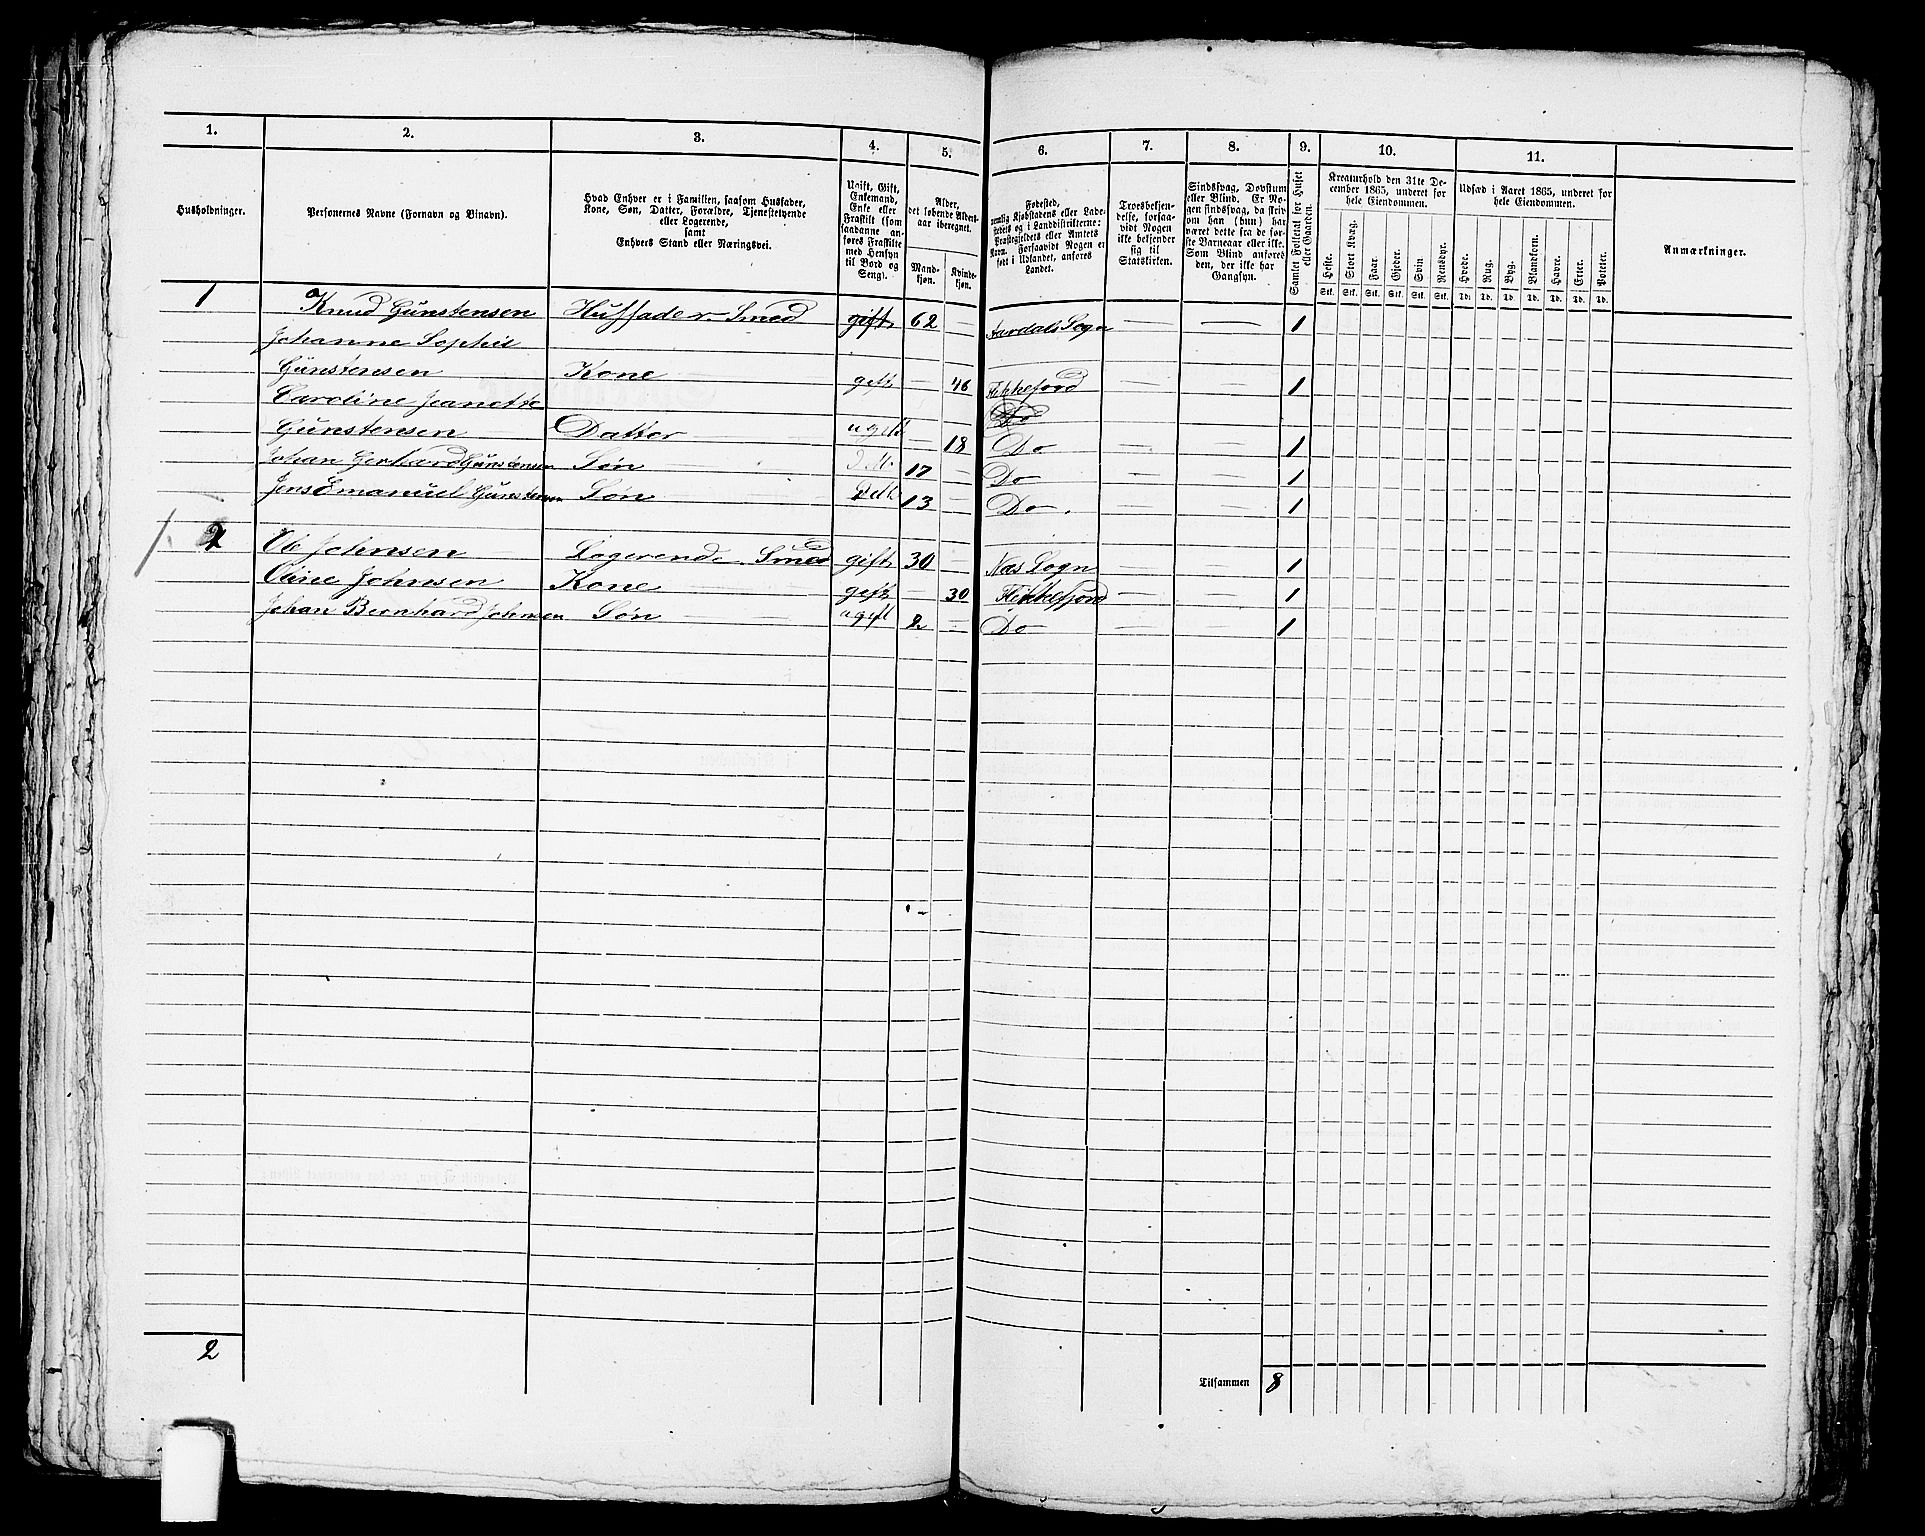 1. 2. 3. 4. 5. 6. 7. 8. 9. 10. 11.
Husholdninger.
Personernes Navne (Fornavn og Binavn).
Hvad Enhver er i Familien, saasom Husfader,
Kone, Søn, Datter, Forældre, Tjenestetyende
eller Logerende,
samt
Enhvers Stand eller Næringsvei.
Ugift, Gift,
Enkemand,
Enke eller
Fraskilt (som
saadanne an-
føres Fraskilte
med Hensyn
til Bord og
Seng).
Alder,
det løbende Alders-
aar iberegnet.
Mand-
kjøn.
Kvinde-
kjøn.
Fødested,
nemlig Kjøbstadens eller Lade-
stedets og i Landdistrikterne:
Præstegjeldets eller Amtets
Navn. Forsaavidt Nogen er
født i Udlandet, anføres
Landet.
Troesbekjen-
delse, forsaa-
vidt Nogen
ikke bekjender
sig til
Statskirken.
Sindssvag, Døvstum
eller Blind. Er No-
gen sindssvag, da skriv
om han (hun) har
været dette fra de før-
ste Barneaar eller ikke.
Som Blind anføres
den, der ikke har
Gangsyn.
Samlet Folketal for Huset
eller Gaarden.
Kreaturhold den 31te De-
cember 1865, underet for
hele Eiendommen.
Heste. Stort Kvæg. Faar. Gjeder. Svin. Rensdyr.
Stk. Stk. Stk. Stk. Stk. Stk.
Udsæd i Aaret 1865, underet for
hele Eiendommen.
Hvede. Rug. Byg. Blandkorn. Havre. Erter. Poteter.
Td. Td. Td. Td. Td. Td. Td.
Anmærkninger.
1 Knud Gunstensen Husfader Smed gift 62 — Aardals Sogn — — 1
Johanne Sophie
Gunstensen Kone — gift — 46 Flekkefjord — — 1
Caroline Jeanette Do
Gunstensen — Datter — ugift — 18 Do — — 1
Johan Gerhard Gunstensen Søn — 17 — Do — — 1
Jens Emanuel Gunstensen Søn — 13 — Do — — 1
2 Ole Johnsen — Logerende Smed gift 30 — Næs Sogn — — 1
Oline Johnsen Kone — gift — 30 Flekkefjord — — 1
Johan Bernhard Johnsen Søn — ugift 2 — Do — — 1
2
Tilsammen 8